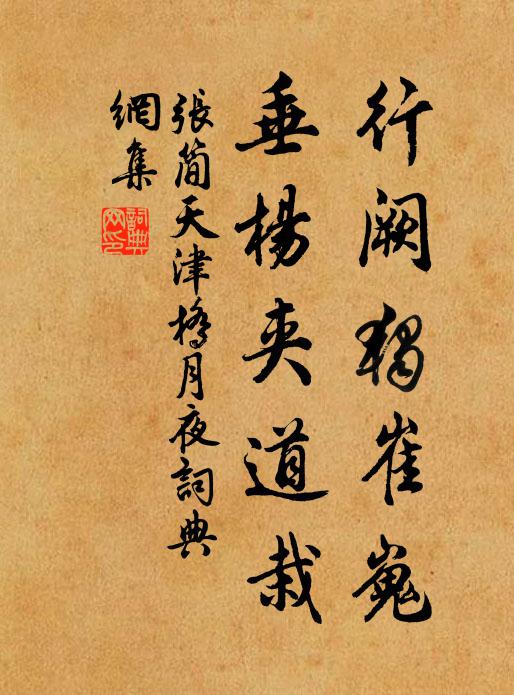 行阙獨崔嵬
垂楊夾道栽
張簡天津橋月夜詞典
網集
詞典
網印